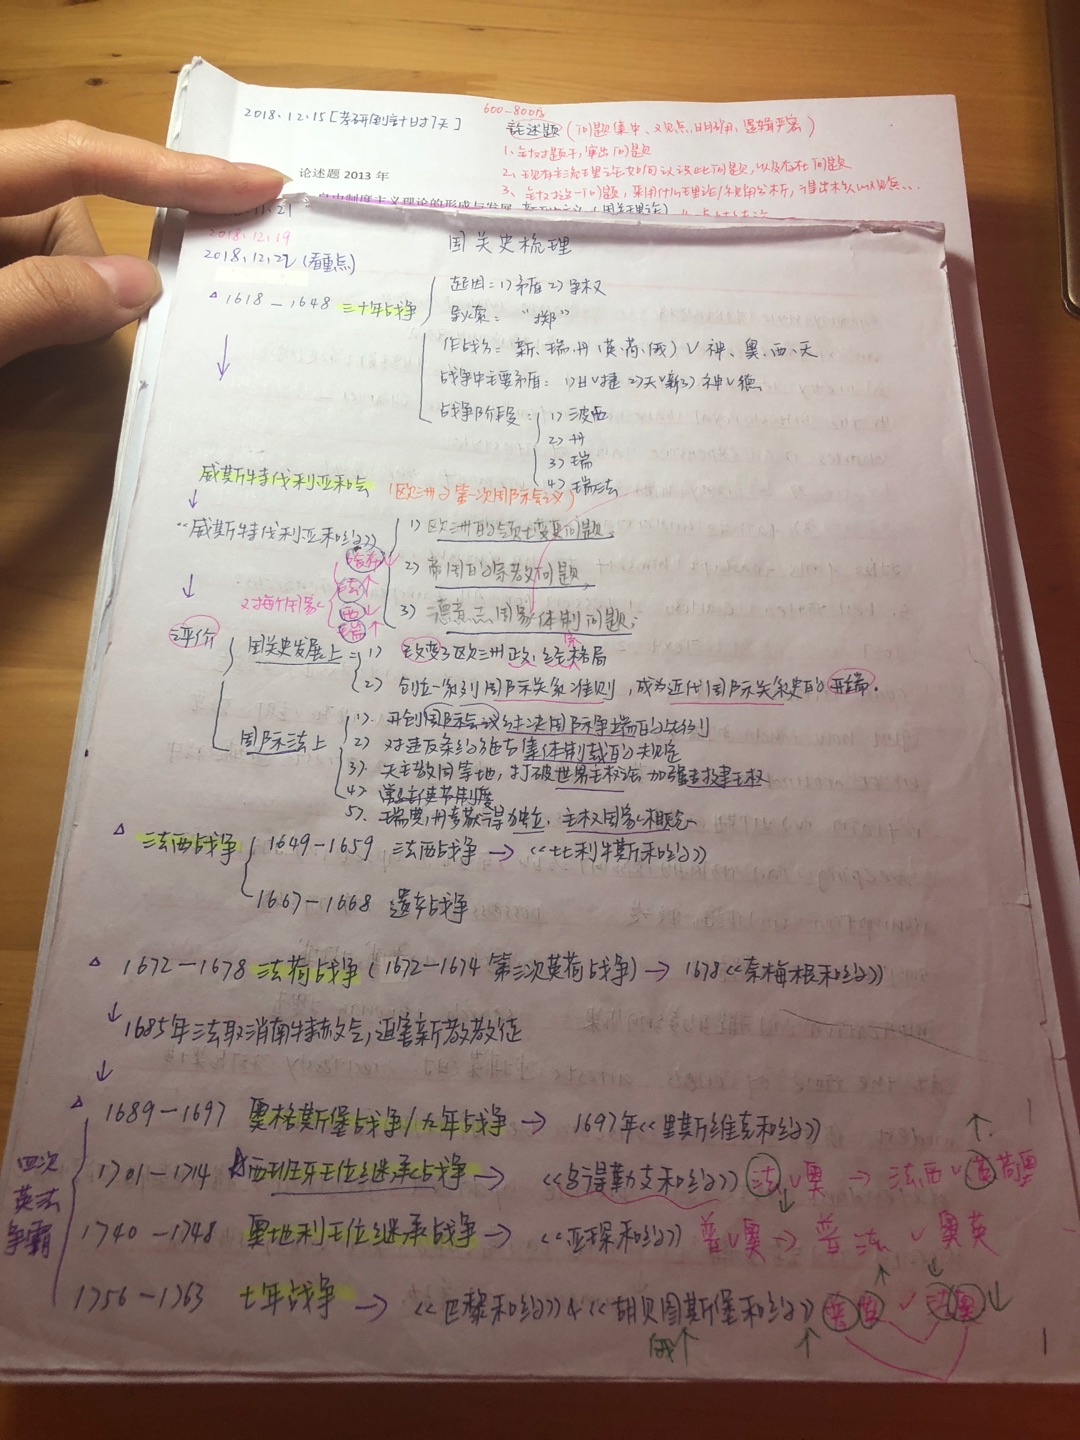 2018.12.15[考研倒计时7天]
600-800字
论述题(问题集中、观点明确、逻辑严密)
1、针对题干,穿出问题
2、现有主流理论如何认识此问题,以及存在问题
3、针对这一问题,采用什么理论/视角分析,得出本人观点...
论述题 2013 年
自由制度主义理论的形成与发展
2018.12.19
2018.12.22(看重点)
国关史梳理
△ 1618-1648 三十年战争
起因:1)矛盾 2)争权
导火索:“掷”
作战方:新、瑞、丹(英、荷、俄) V 神、奥、西、天
战争中主要矛盾:1)日V捷 2)天V新 3)神V德
战争阶段:1)波西
2)丹
3)瑞
4)瑞法
威斯特伐利亚和会(欧洲的第一次国际会议)
《威斯特伐利亚和约》
1)欧洲的领土变更问题
2)帝国的宗教问题
3)德意志国家体制问题
对每个国家
法↑
西↓
瑞↑
评价
国关史发展上:1) 改变了欧洲政、经格局
2) 创立一系列国际关系准则,成为近代国际关系史的开端.
国际法上
1). 开创国际会议解决国际争端的先例
2) 对违反条约施与集体制裁的规定
3). 天主教国等地,打破世界主权论,加强封建王权
4) 常驻使节制度
5). 瑞典,丹麦获得独立,主权国家概念
△ 法西战争
1649-1659 法西战争→《比利牛斯和约》
1667-1668 遗产战争
△ 1672-1678 法荷战争(1672-1674 第三次英荷战争)→1678《奈梅根和约》
1685年法取消南特敕令,迫害新教教徒
四次英法争霸
△ 1689-1697 奥格斯堡战争/九年战争→1697年《里斯维克和约》
1701-1714 西班牙王位继承战争→《乌得勒支和约》 法V奥→法西V英荷奥
1740-1748 奥地利王位继承战争→《亚琛和约》 普V奥→普法V奥英
1756-1763 七年战争→《巴黎和约》&《胡贝图斯堡和约》 普英V法奥
俄↑